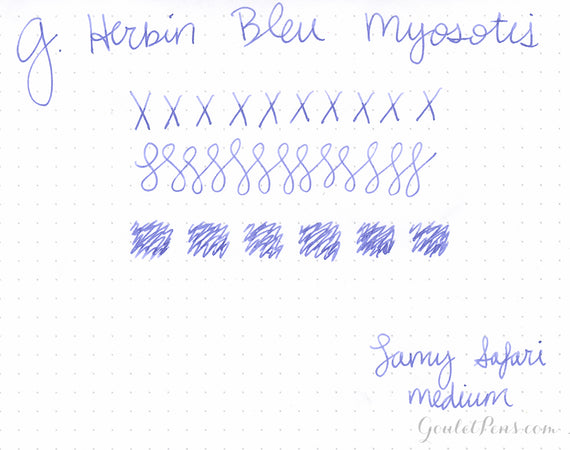 J. Herbin Bleu Myosotis
X X X X X X X X X X
Lamy Safari
medium
GouletPens.com